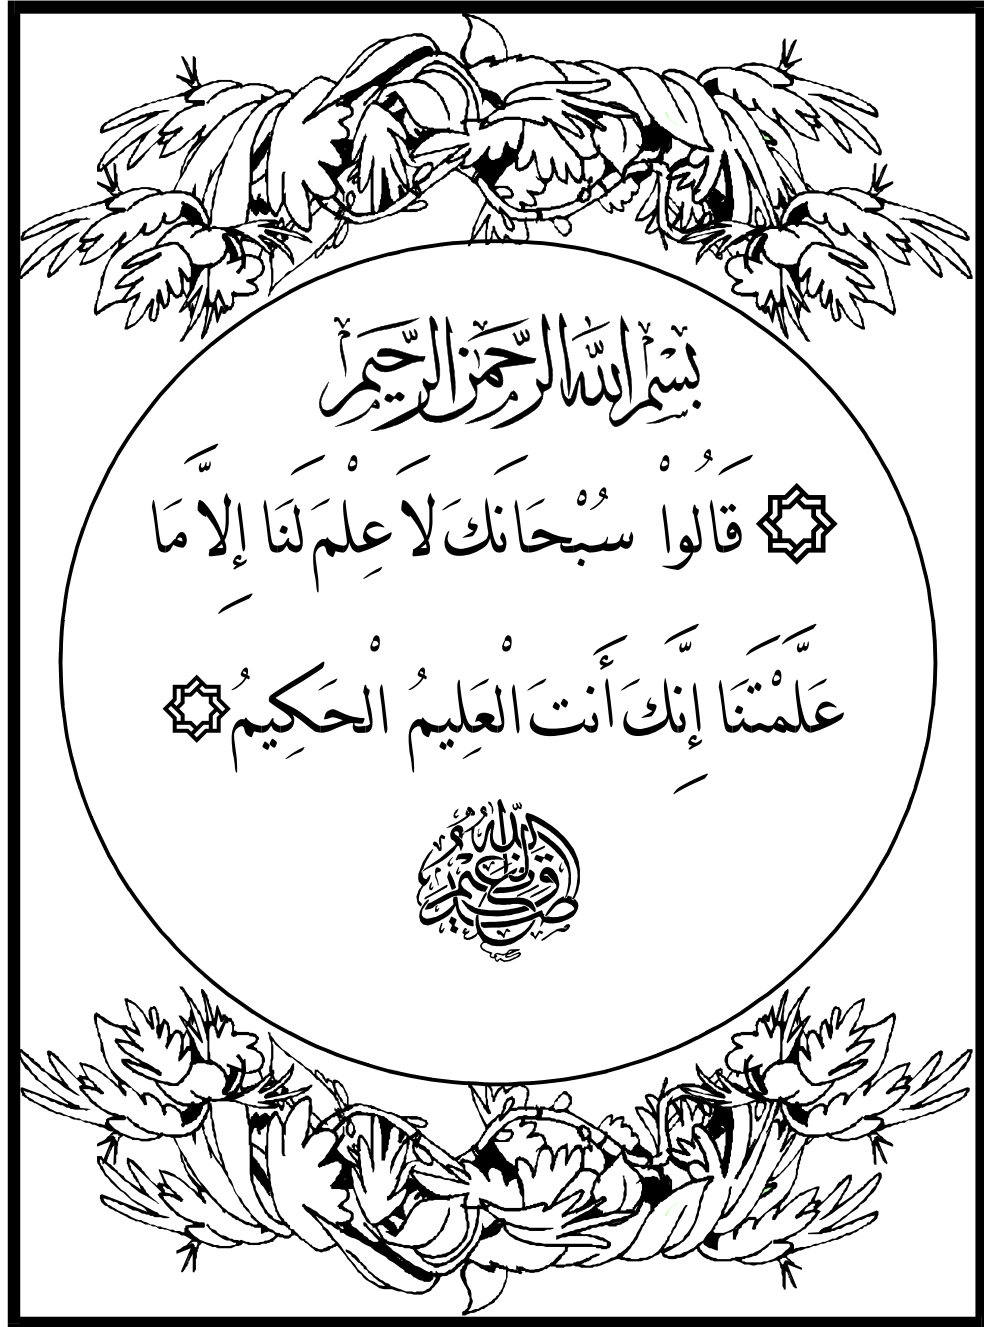 بِسْمِ اللهِ الرَّحْمٰنِ الرَّحِيمِ
۞ قَالُواْ سُبْحَانَكَ لَا عِلْمَ لَنَا إِلَّا مَا
عَلَّمْتَنَا إِنَّكَ أَنتَ الْعَلِيمُ الْحَكِيمُ ۞
صدق الله العظيم